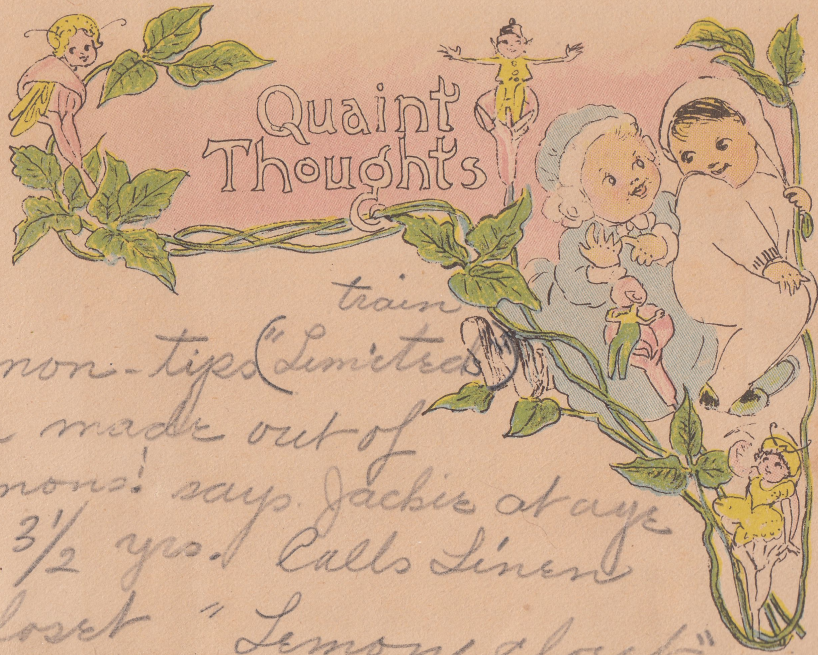 Quaint
Thoughts
train
mon-tips ("Limited")
made out of
mons! says Jackie at age
3 1/2 yrs. Calls Linen
loset " Lemon closet"